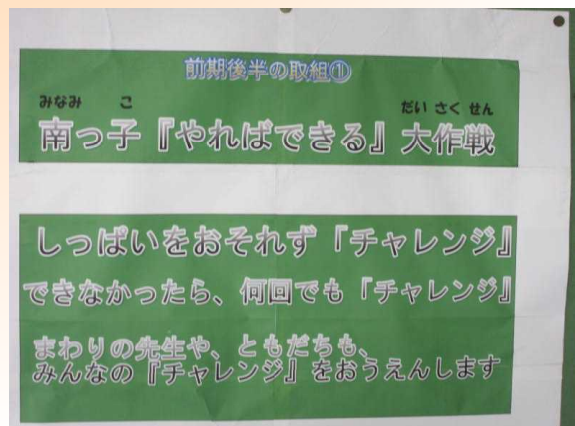 前期後半の取組①
みなみ こ だい さく せん
南っ子『やればできる』大作戦
しっぱいをおそれず「チャレンジ』
できなかったら、何回でも「チャレンジ』
まわりの先生や、ともだちも、
みんなの『チャレンジ』をおうえんします